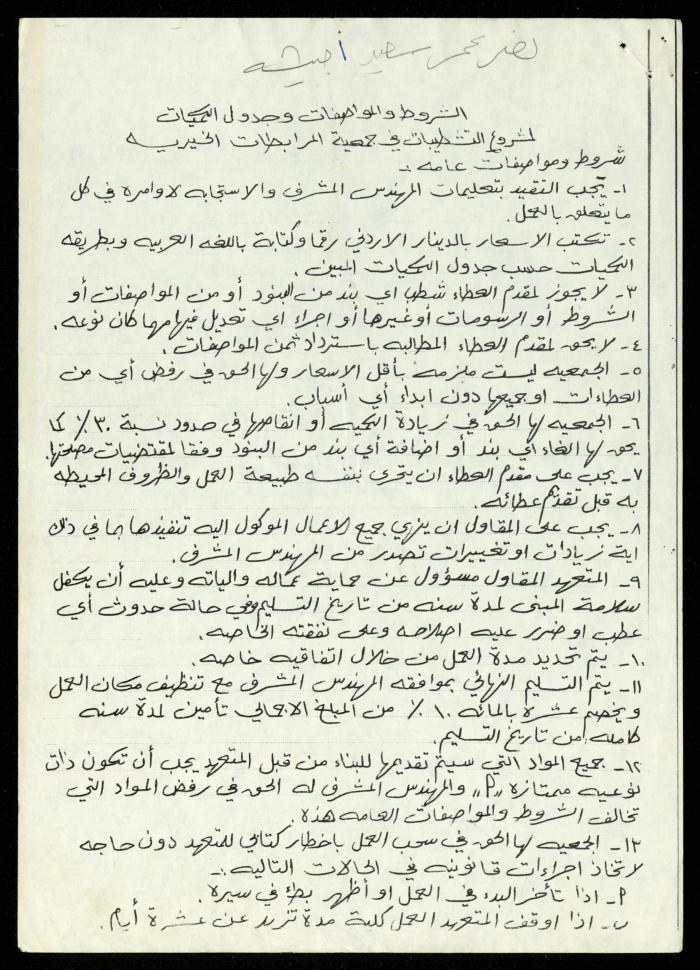 نضر محمد سعيد
الشروط والمواصفات وجدول الكميات
لمشروع التشطيبات في جمعية المرابطات الخيريه
شروط ومواصفات عامه :-
١- يجب التقيد بتعليمات المهندس المشرف والاستجابه لاوامره في كل
ما يتعلق بالعمل.
٢- تكتب الاسعار بالدينار الاردني رقما وكتابة باللغه العربيه وبطريقه
الكميات حسب جدول الكميات المبين .
٣- لا يجوز لمقدم العطاء شطب اي بند من البنود أو من المواصفات أو
الشروط أو الرسومات أو غيرها أو اجراء اي تعديل فيها مهما كان نوعه.
٤- لا يحق لمقدم العطاء المطالبه باسترداد ثمن المواصفات .
٥- الجمعيه ليست ملزمه بأقل الاسعار ولها الحق في رفض أي من
العطاءات او جميعها دون ابداء أي أسباب.
٦- الجمعيه لها الحق في زيادة الكميه أو انقاصها في حدود نسبة ٣٠٪ كما
يحق لها الغاء اي بند أو اضافة أي بند من البنود وفقا لمقتضيات مصلحتها.
٧- يجب على مقدم العطاء ان يتحرى بنفسه طبيعة العمل والظروف المحيطه
به قبل تقديم عطائه.
٨- يجب على المقاول ان ينهي جميع الاعمال الموكول اليه تنفيذها بما في ذلك
اية زيادات او تغييرات تصدر من المهندس المشرف.
٩- المتعهد المقاول مسؤول عن حماية عماله والياته وعليه أن يكفل
سلامة المبنى لمدة سنه من تاريخ التسليم وفي حالة حدوث أي
عطب او ضرر عليه اصلاحه وعلى نفقته الخاصه.
١٠- يتم تحديد مدة العمل من خلال اتفاقيه خاصه.
١١- يتم التسليم النهائي بموافقه المهندس المشرف مع تنظيف مكان العمل
ويخصم عشرة بالمائه ١٠٪ من المبلغ الاجمالي تأمين لمدة سنه
كامله من تاريخ التسليم.
١٢- جميع المواد التي سيتم تقديمها للبناء من قبل المتعهد يجب أن تكون ذات
نوعيه ممتازه "أ" والمهندس المشرف له الحق في رفض المواد التي
تخالف الشروط والمواصفات العامه هذه.
١٣- الجمعيه لها الحق في سحب العمل باخطار كتابي للمتعهد دون حاجه
لاتخاذ اجراءات قانونيه في الحالات التاليه :-
أ- اذا تأخر البدء في العمل او أظهر بطئ في سيره.
ب- اذا اوقف المتعهد العمل كلية مدة تزيد عن عشرة أيام.